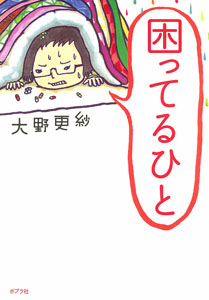 困ってるひと
大野更紗
ポプラ社